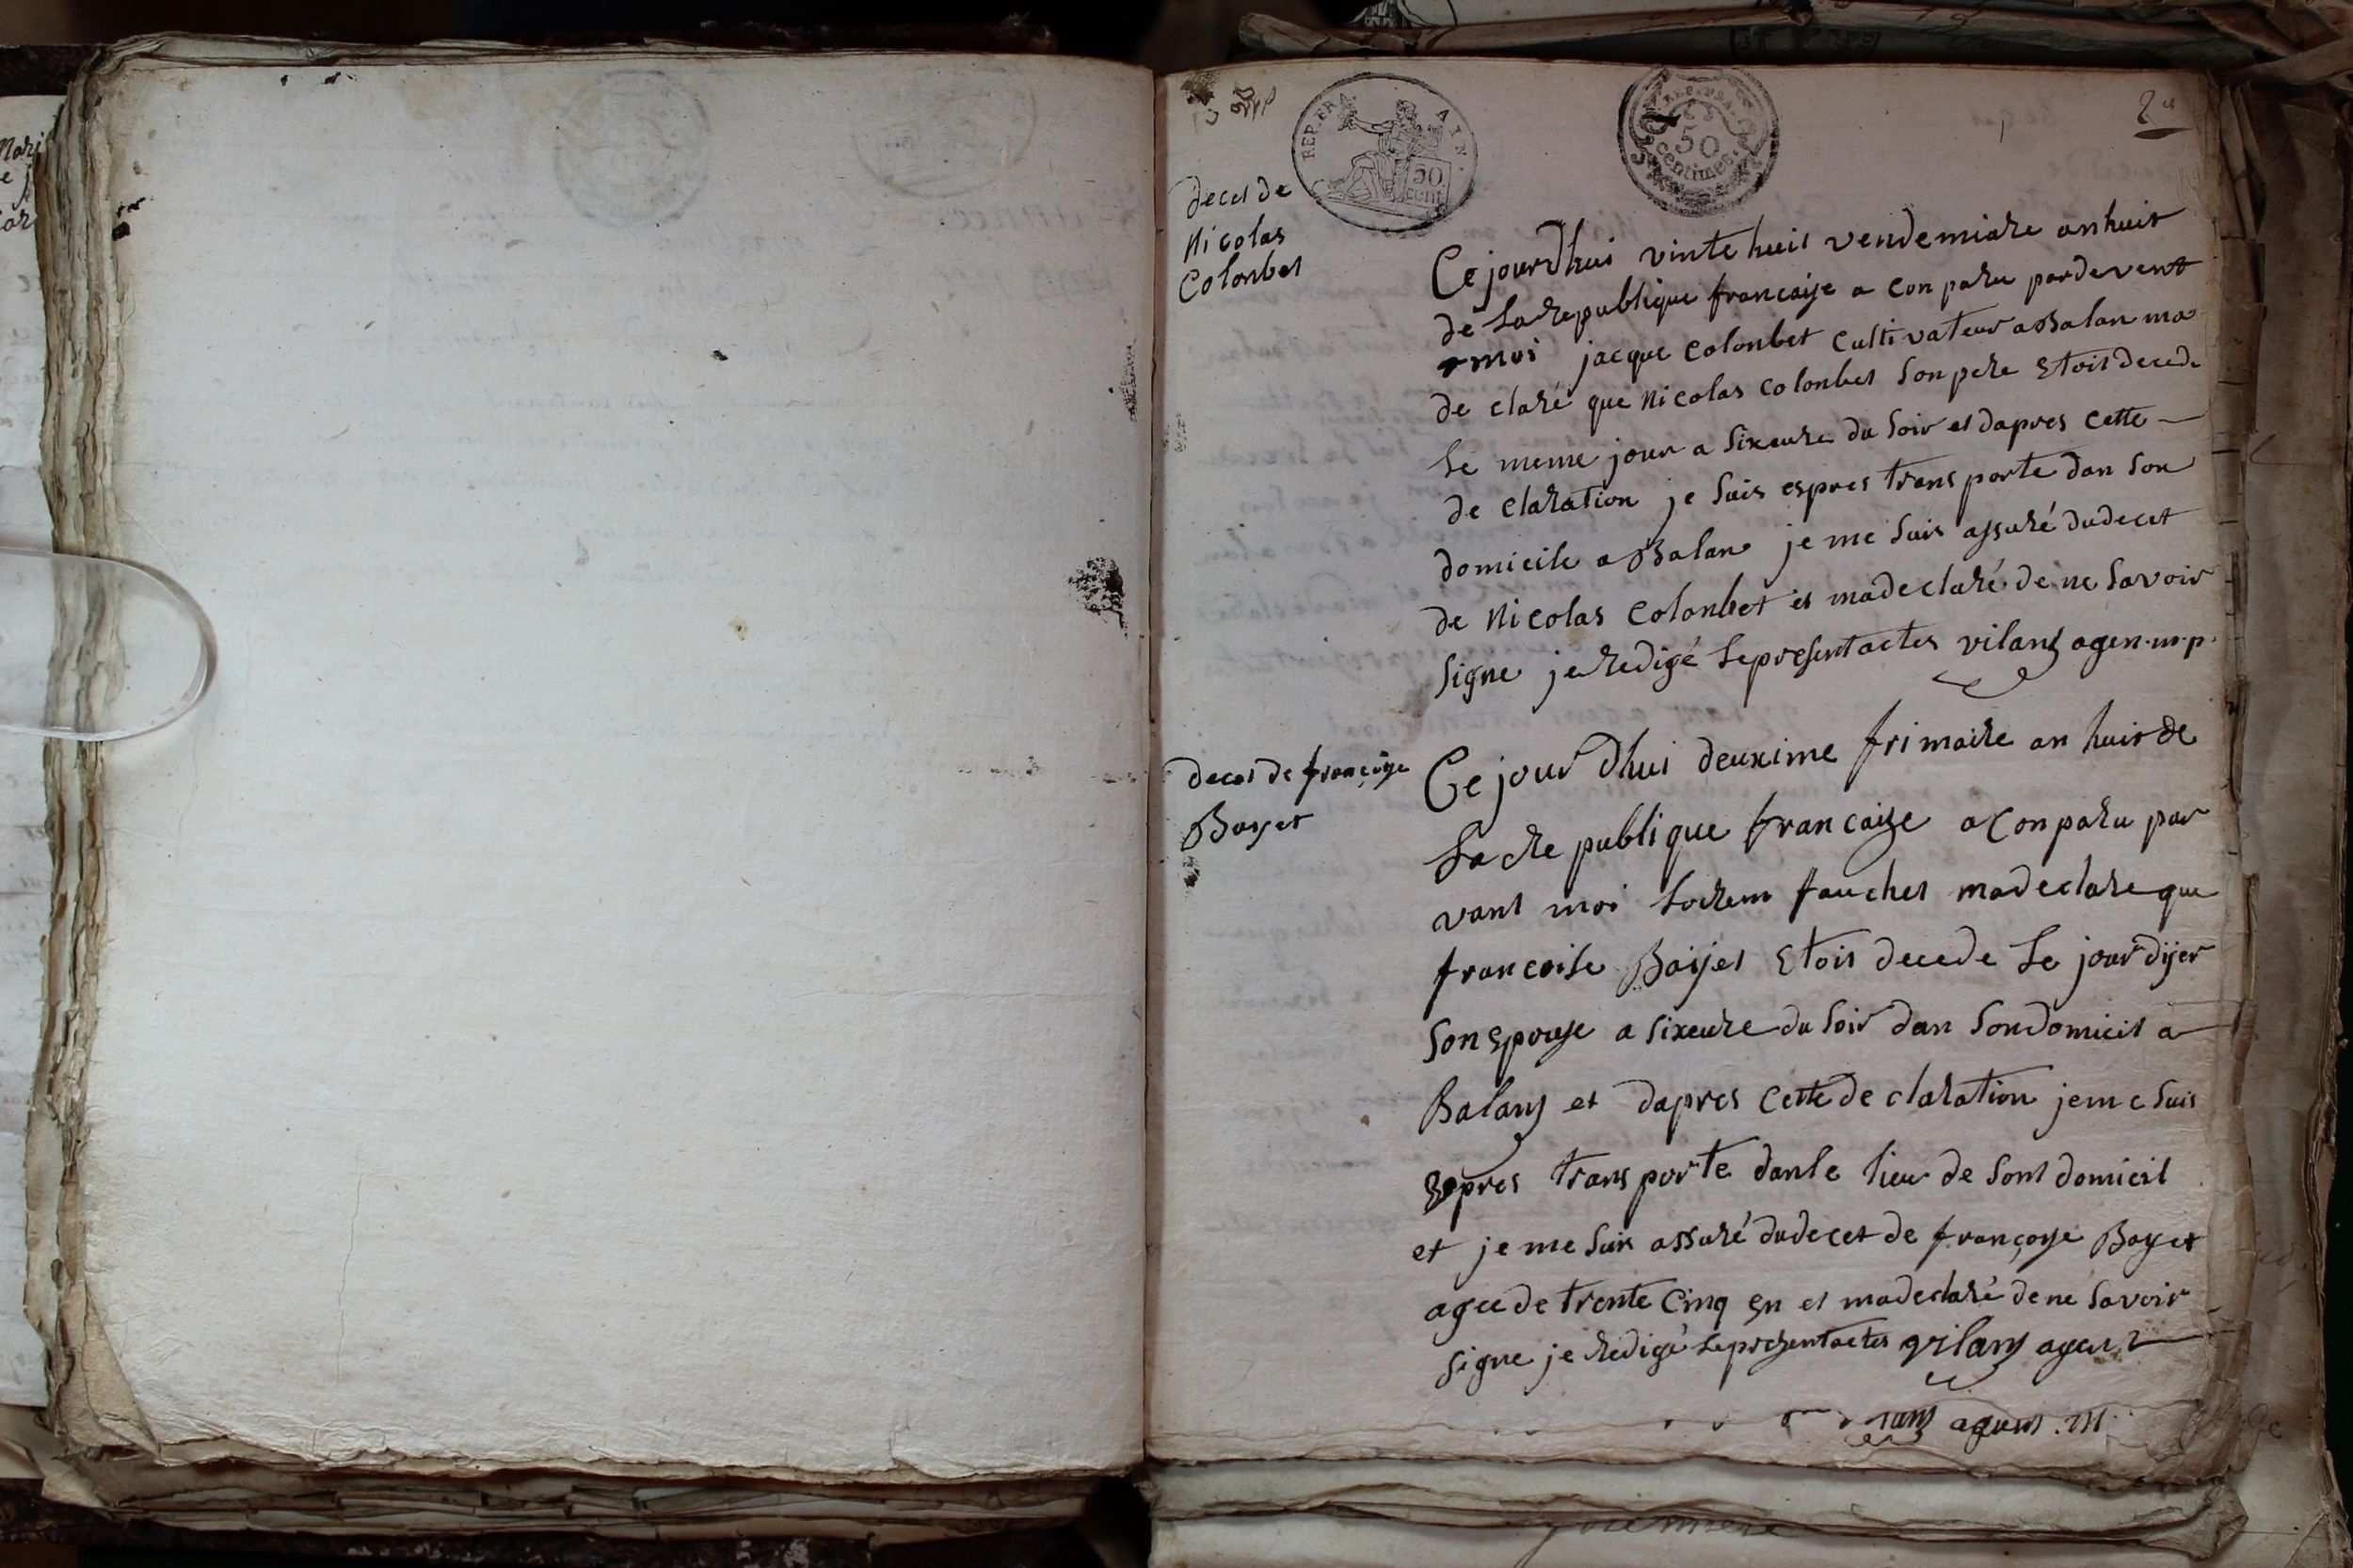 2e
REP. FRA. AIN.
50
cent.
50
centimes
deces de
Nicolas
Colonbet
Ce jourdhui vinte huit vendemiaire an huit
de La republique francaise a conparu pardevent
moi jacque colonbet cultivateur a Balan ma
de claré que Nicolas colonbet Son pere Etoit decede
Le meme jour a Sixeure du Soir et dapres cette
de claration je Suis espres trans porte dan Son
domicile a Balan je me Suis assuré du decet
de Nicolas colonbet et ma declaré de ne Savoir
Signe je redigé Le present actes vilan agen.m.p.
deces de françoise
Boyet
Ce jour dhui deuxime frimaire an huit de
La re publique francaise a conparu par
vant moi Lorem fauchet ma declare que
francoise Boyet Etoit decede Le jour dyer
Son Epouse a Sixeure du Soir dan Son domicil a
Balan et dapres cette de claration je me Suis
Espres trans porte dan le lieu de Sont domicil
et je me Suis assuré du decet de françoise Boyet
agee de trente cinq en et ma declaré de ne Savoir
Signe je redigé Le present actes vilan agent
agent .m.